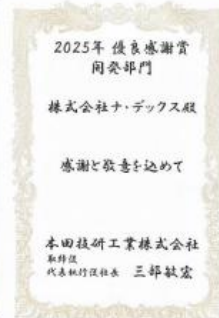 2025年 優良感謝賞
開発部門
株式会社ナ・デックス殿
感謝と敬意を込めて
本田技研工業株式会社
取締役
代表執行役社長 三部敏宏